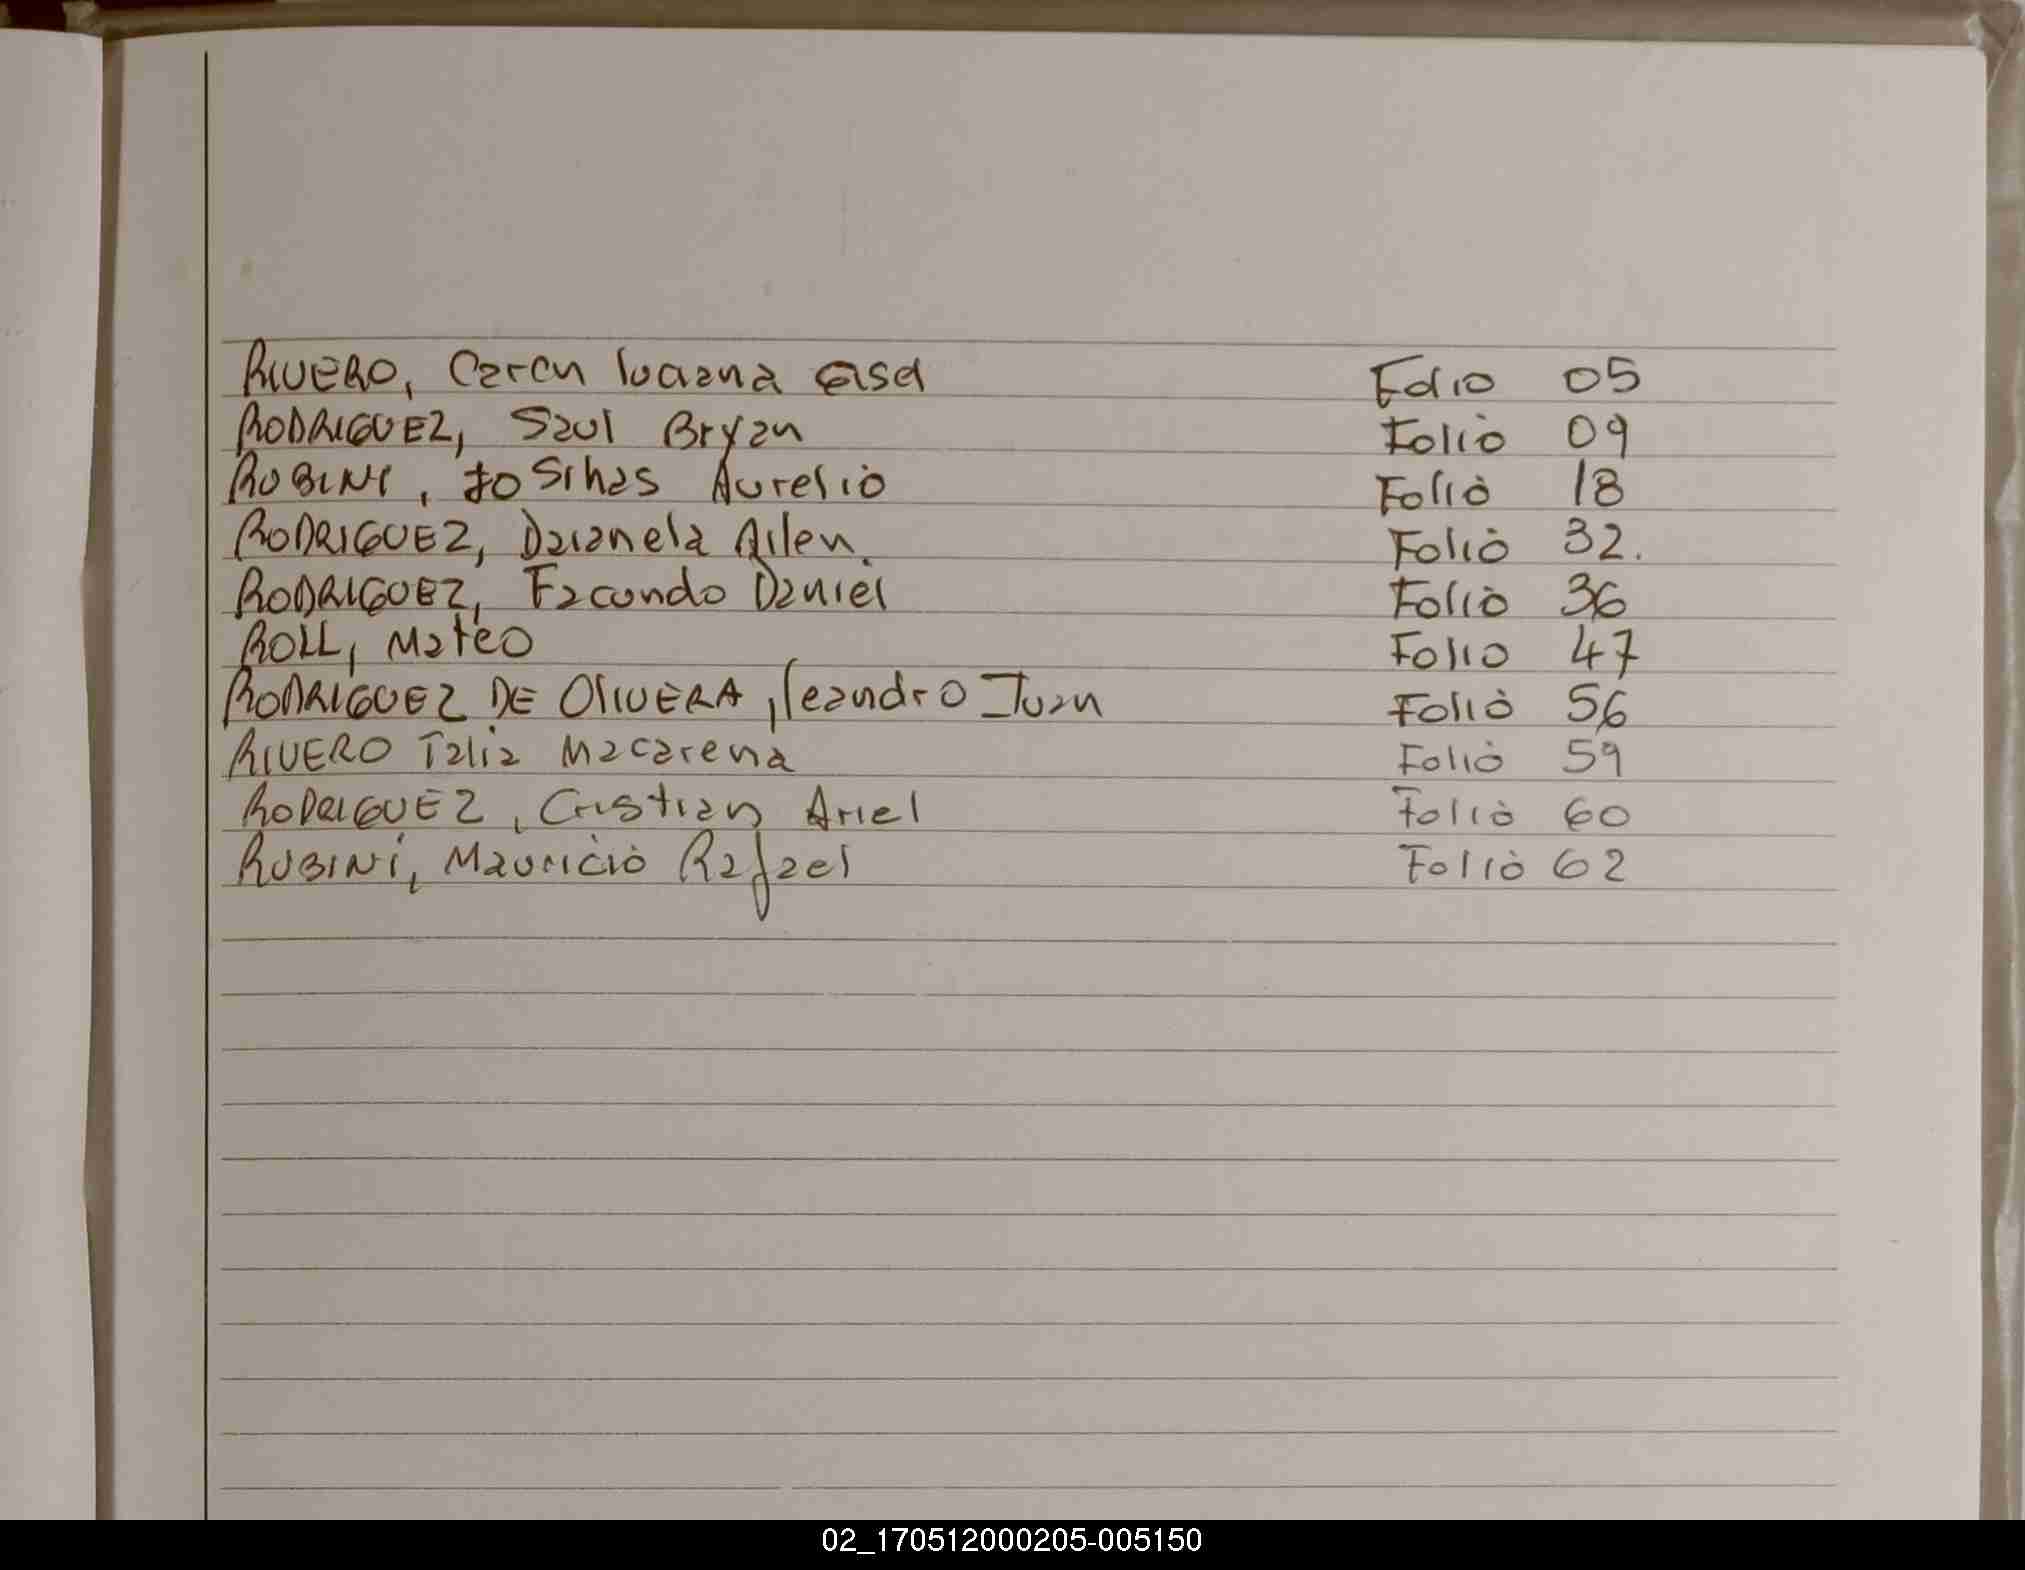 RIVERO, Caren luciana Gisel Folio 05
RODRIGUEZ, Saul Bryan Folio 09
RUBINI, Josihas Aurelio Folio 18
RODRIGUEZ, Daianela Ailen. Folio 32.
RODRIGUEZ, Facundo Daniel Folio 36
ROLL, Mateo Folio 47
RODRIGUEZ DE OlIVERA, leandro Juan Folio 56
RIVERO Talia Macarena Folio 59
RODRIGUEZ, Cristian Ariel Folio 60
RUBINI, Mauricio Rafael Folio 62
02_170512000205-005150